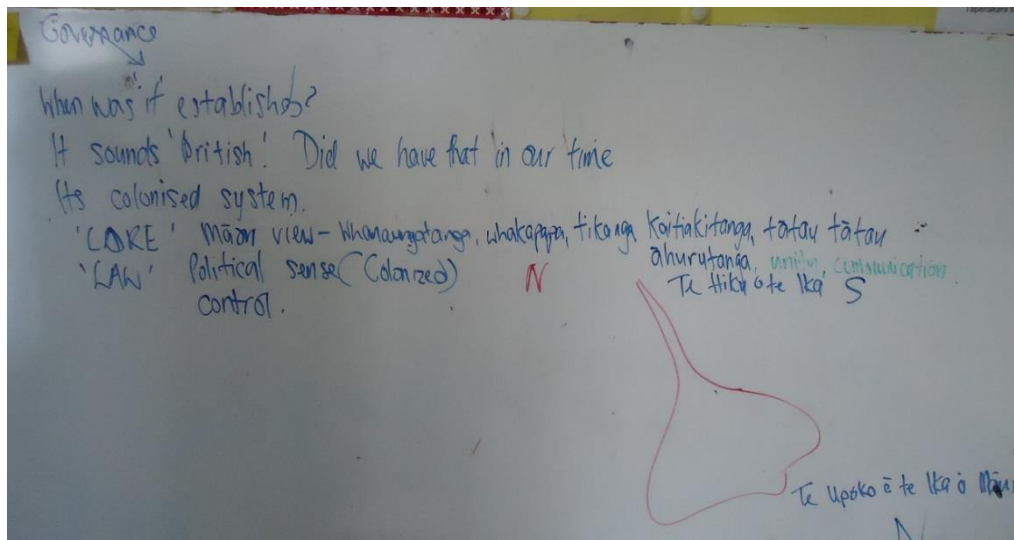 Governance
When was it established?
It sounds 'British'. Did we have that in our time
Its colonised system.
'CORE' Māori view - Whanaungatanga, whakapapa, tikanga Kaitiakitanga, tātau tātau
āhurutanga, unity, communication.
'LAW' Political sense (Colonized)
control.
N
Te Hiku o te Ika S
Te Upoko ō te Ika ō Māui
N